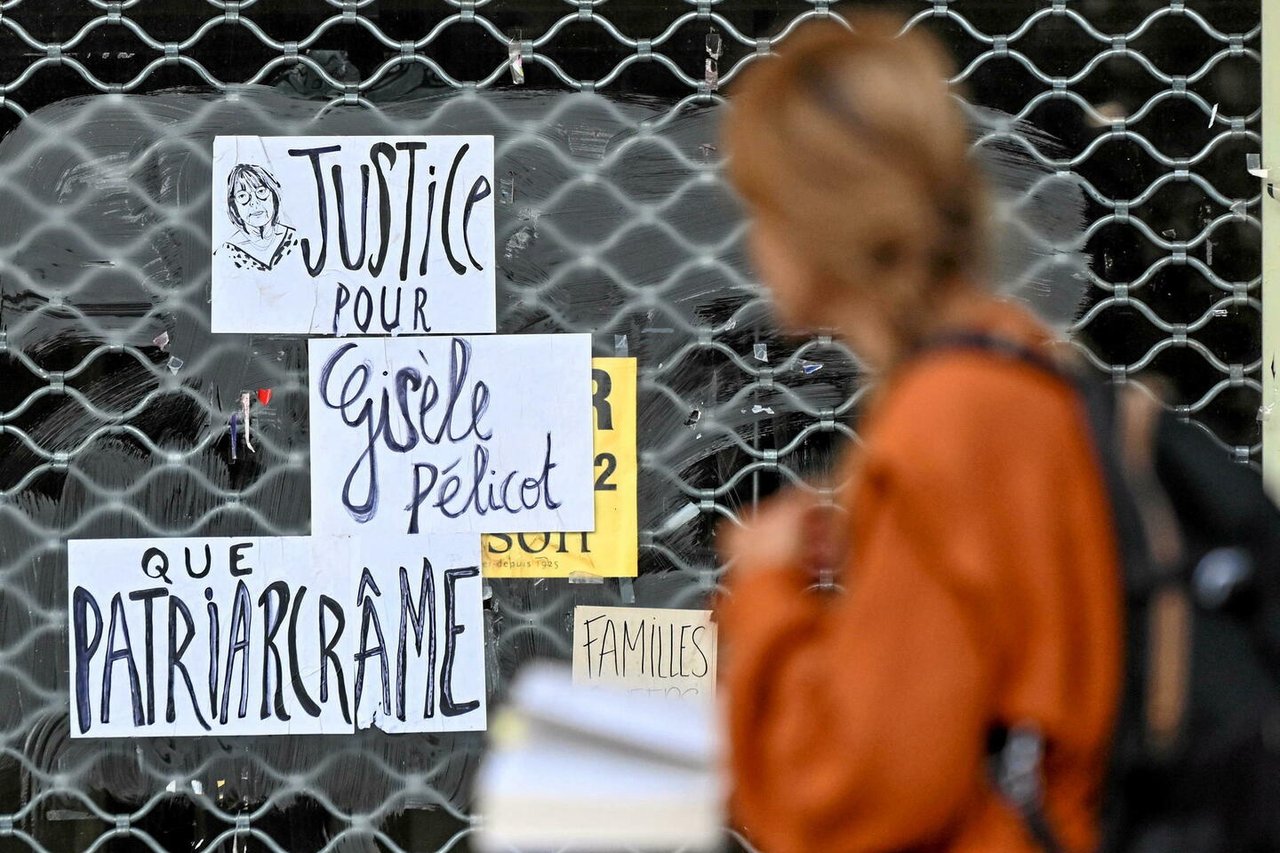 JUSTiCe
POUR
Gisèle
pélicot
QUE
PATRiARCRÂME
R
2
son
depuis 1925
FAMILLES